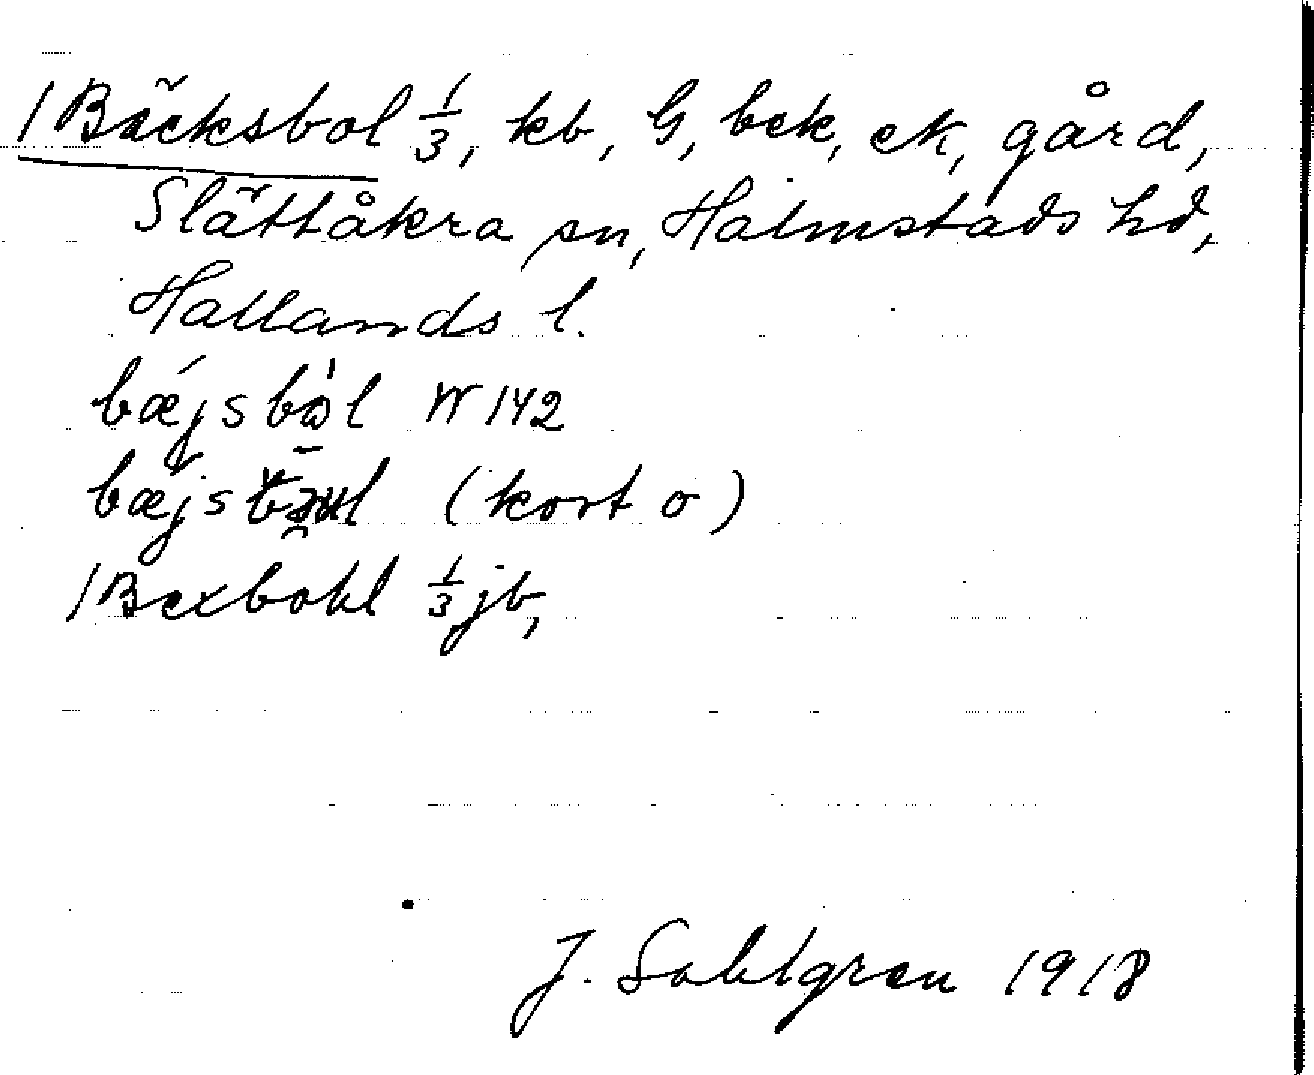 1 Bäcksbol 1/3, kb, G, bek, ek, gård,
Slättåkra sn, Halmstads hd,
Hallands l.
bæjsbol W 142
bæjs (kort o)
1 Bexbohl 1/3 jb,
J. Sahlgren 1918